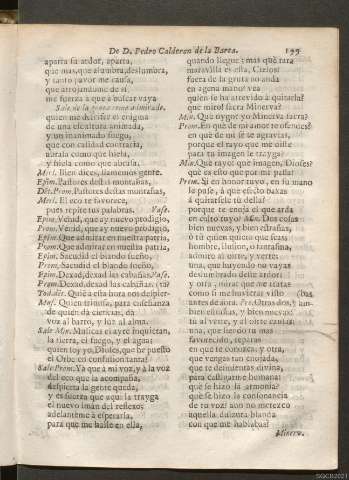 De D. Pedro Calderon de la Barca. 199
aparta su ardor, aparta,
que mas, que alumbra, deslumbra,
y tanto pavor me causa,
que arrojandome de si
me fuerza a que à buscar vaya
Sale de la gruta como admirado.
quien me descifre el enigma
de una escultura animada,
y un inanimado fuego,
que con calidad contraria,
abrasa como que hiela,
y hiela como que abrasa.
Merl. Bien dices, llamemos gente.
Epim. Pastores destas montañas,
Dēt. Prom. Pastores destas montañas,
Merl. El eco te favorece,
pues repite tus palabras. Vase.
Epim. Venid, que ay nuevo prodigio,
Prom. Venid, que ay nuevo prodigio,
Epim. Que admirar en nuestra patria,
Prom. Que admirar en nuestra patria,
Epim. Sacudid el blando sueño,
Prom. Sacudid el blando sueño,
Epim. Dexad, dexad las cabañas. Vase.
Prom. Dexad, dexad las cabañas.
Tod. dēt. Què à esta hora nos despier-
Mus. Quien triunfa, para enseñanza
de quien dà ciencias, da
voz al barro, y luz al alma.
Sale Min. Musicas ay que inquietan,
la tierra, el fuego, y el agua:
quien soy yo, Dioses, que he puesto
el Orbe en confusion tanta?
Sale Prom. Ya que à mi voz, y à la voz
del eco que la acompaña,
despierta la gente queda,
y es fuerza que aqui la trayga
el nuevo imán del reflexo;
adelantème à esperarla,
para que me halle en ella,
quando llegue: mas què rara
maravilla es esta, Cielos!
fuera de la gruta no anda
en agena mano? vea
quien se ha atrevido à quitarla?
què miro! sacra Minerva?
Min. Què oygo! yo Minerva sacra?
Prom. En què de mi amor te ofendes?
en què de mi fè te agravias,
porque el rayo que me diste
para tu imagen le trayga?
Min. Què rayo? què imagen, Dioses?
què es esto que por mi passa?
Prom. Si en honor tuyo, en su mano
le puse, à què efecto baxas
à quitarsele tu della?
porque te enoja el que arda
en culto tuyo? Min. Dos cosas
bien nuevas, y bien estrañas,
ò tu quien quiera que seas,
hombre, ilusion, ò fantasma,
admiro al oirte, y verte:
una, que huyendo no vayas
deslumbrado deste ardor:
y otra, mirar que me tratas
como si me huvieras visto
antes de aora. Pr. Otras dos, y tan-
bien estrañas, y bien nuevas:
tù al verte, y al oirte causas:
una, que siendo tu mas
favorecido, reparas
en que te conozca: y otra,
que vengas tan enojada,
que te desmientas divina,
para castigarme humana:
què se hizo la armonia?
què se hizo la consonancia
de tu voz? aun no merezco
aquella dulzura blanda
con que me hablabas?
Minerv.